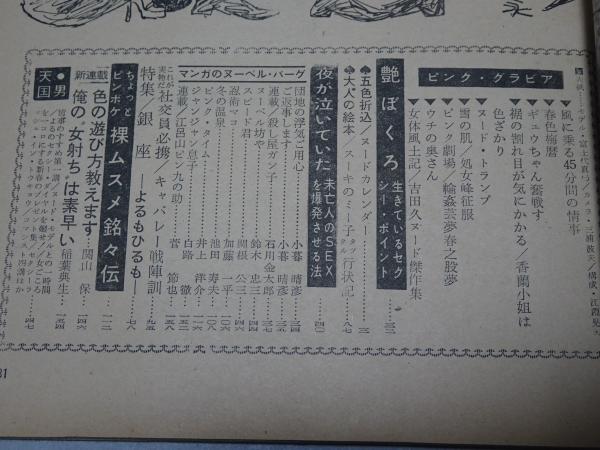 表紙…モデル・富士代真リ／カメラ・三浦波夫／構成・江原晃
ピンク・グラビア
▼風に乗る45分間の情事
▼春色梅暦
▼ギュウちゃん奮戦す
▼裾の割れ目が気にかかる／香蘭小姐は
色ざかり
▼ヌード・トランプ
▼雪の肌／処女峰征服
▼ピンク劇場／輪姦芸夢春之股夢
▼ウチの奥さん
▼女体風土記／吉田久ヌード傑作集
艶ぼくろ 生きているセクシー・ポイント 三三
♠五色折込／ヌードカレンダー
♠大人の絵本／スーキのミー子 行状記 八七
夜が泣いていた 未亡人のSEXを爆発させる法 四〇
マンガのヌーベル・バーグ
団地の浮気ご用心 小暮 晴彦
ご返事します 小暮 晴彦
連載／殺し屋ガン子 石川金太郎
ヌーベル坊や 鈴木 忠三
スピード君 関根 公三
忍術マコ 加藤 一平
冬の温泉 池田 寿夫
ピンク・タイム 井上 洋介
ジャンジャン息子 白路 徹
連載／江呂山ピン九の助 菅 節也
これが実物だ 社交員必携／キャバレー戦陣訓 九五
特集／銀座 ―よるもひるも― 七八
ちょっとピンボケ 裸ムスメ銘々伝 一一二
新連載 色の遊び方教えます 関山 保
俺の〝女射ち〟は素早い 稲葉典生 一五四
●男天国
四七
31